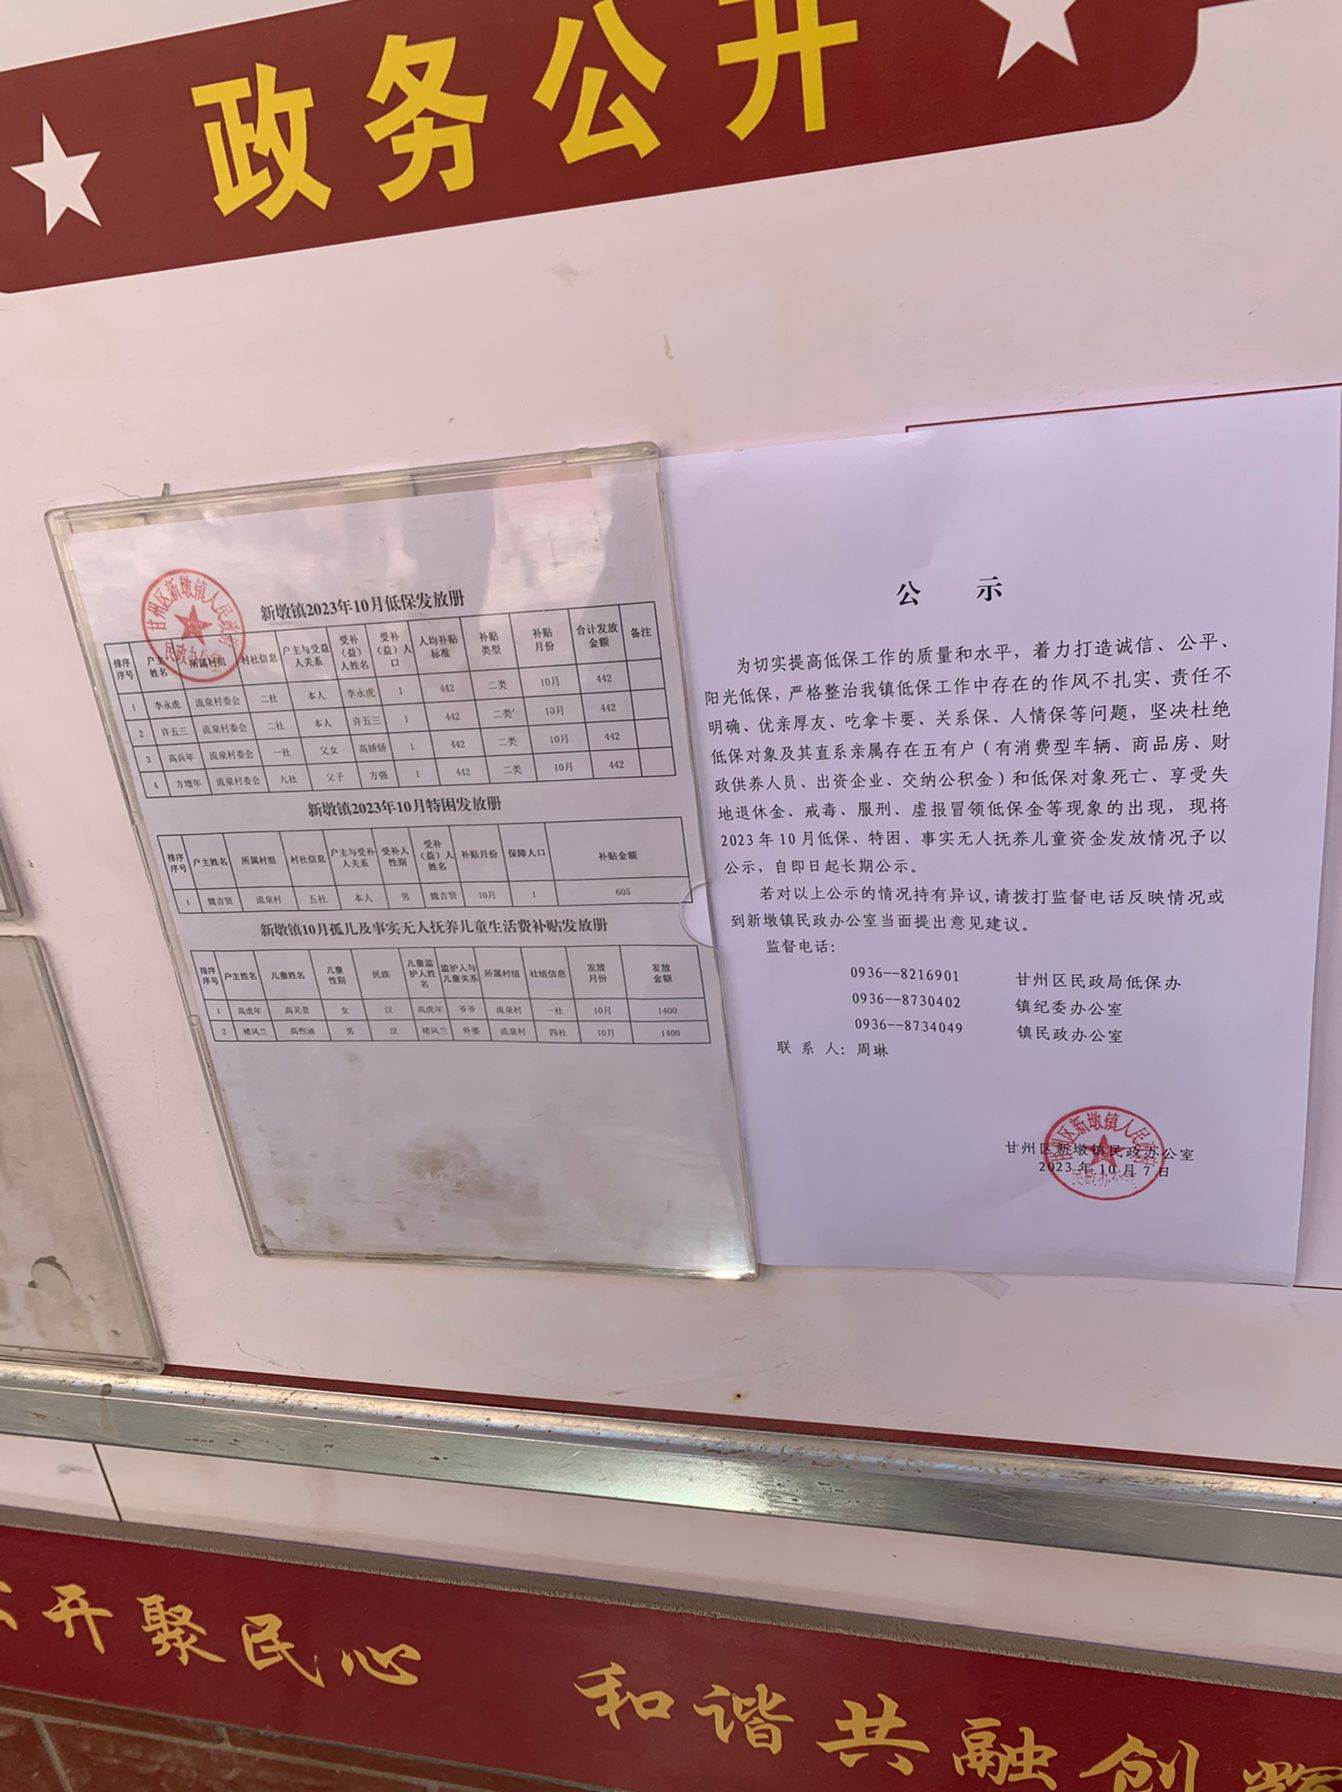 政务公开
新墩镇2023年10月低保发放册
排序序号 户主姓名 所属村组 村社信息 户主与受益人关系 受补（益）人姓名 受补（益）人口 人均补贴标准 补贴类型 补贴月份 合计发放金额 备注
1 李永虎 流泉村委会 二社 本人 李永虎 1 442 二类 10月 442
2 许五三 流泉村委会 二社 本人 许五三 1 442 二类 10月 442
3 高兵年 流泉村委会 一社 父女 高娇娇 1 442 二类 10月 442
4 方增年 流泉村委会 九社 父子 方强 1 442 二类 10月 442
新墩镇2023年10月特困发放册
排序序号 户主姓名 所属村组 村社信息 户主与受补人关系 受补人性别 受补（益）人姓名 补贴月份 保障人口 补贴金额
1 魏吉贤 流泉村 五社 本人 男 魏吉贤 10月 1 605
新墩镇10月孤儿及事实无人抚养儿童生活费补贴发放册
排序序号 户主姓名 儿童姓名 儿童性别 民族 儿童监护人姓名 监护人与儿童关系 所属村组 社组信息 发放月份 发放金额
1 高虎年 高灵萱 女 汉 高虎年 爷爷 流泉村 一社 10月 1400
2 褚风兰 高煦涵 男 汉 褚风兰 外婆 流泉村 四社 10月 1400
甘州区新墩镇人民政府
民政办公室
公 示
为切实提高低保工作的质量和水平，着力打造诚信、公平、
阳光低保，严格整治我镇低保工作中存在的作风不扎实、责任不
明确、优亲厚友、吃拿卡要、关系保、人情保等问题，坚决杜绝
低保对象及其直系亲属存在五有户（有消费型车辆、商品房、财
政供养人员、出资企业、交纳公积金）和低保对象死亡、享受失
地退休金、戒毒、服刑、虚报冒领低保金等现象的出现，现将
2023年10月低保、特困、事实无人抚养儿童资金发放情况予以
公示，自即日起长期公示。
若对以上公示的情况持有异议，请拨打监督电话反映情况或
到新墩镇民政办公室当面提出意见建议。
监督电话：
0936--8216901 甘州区民政局低保办
0936--8730402 镇纪委办公室
0936--8734049 镇民政办公室
联 系 人：周琳
甘州区新墩镇民政办公室
2023年10月7日
甘州区新墩镇人民政府
民政办公室
开聚民心 和谐共融创